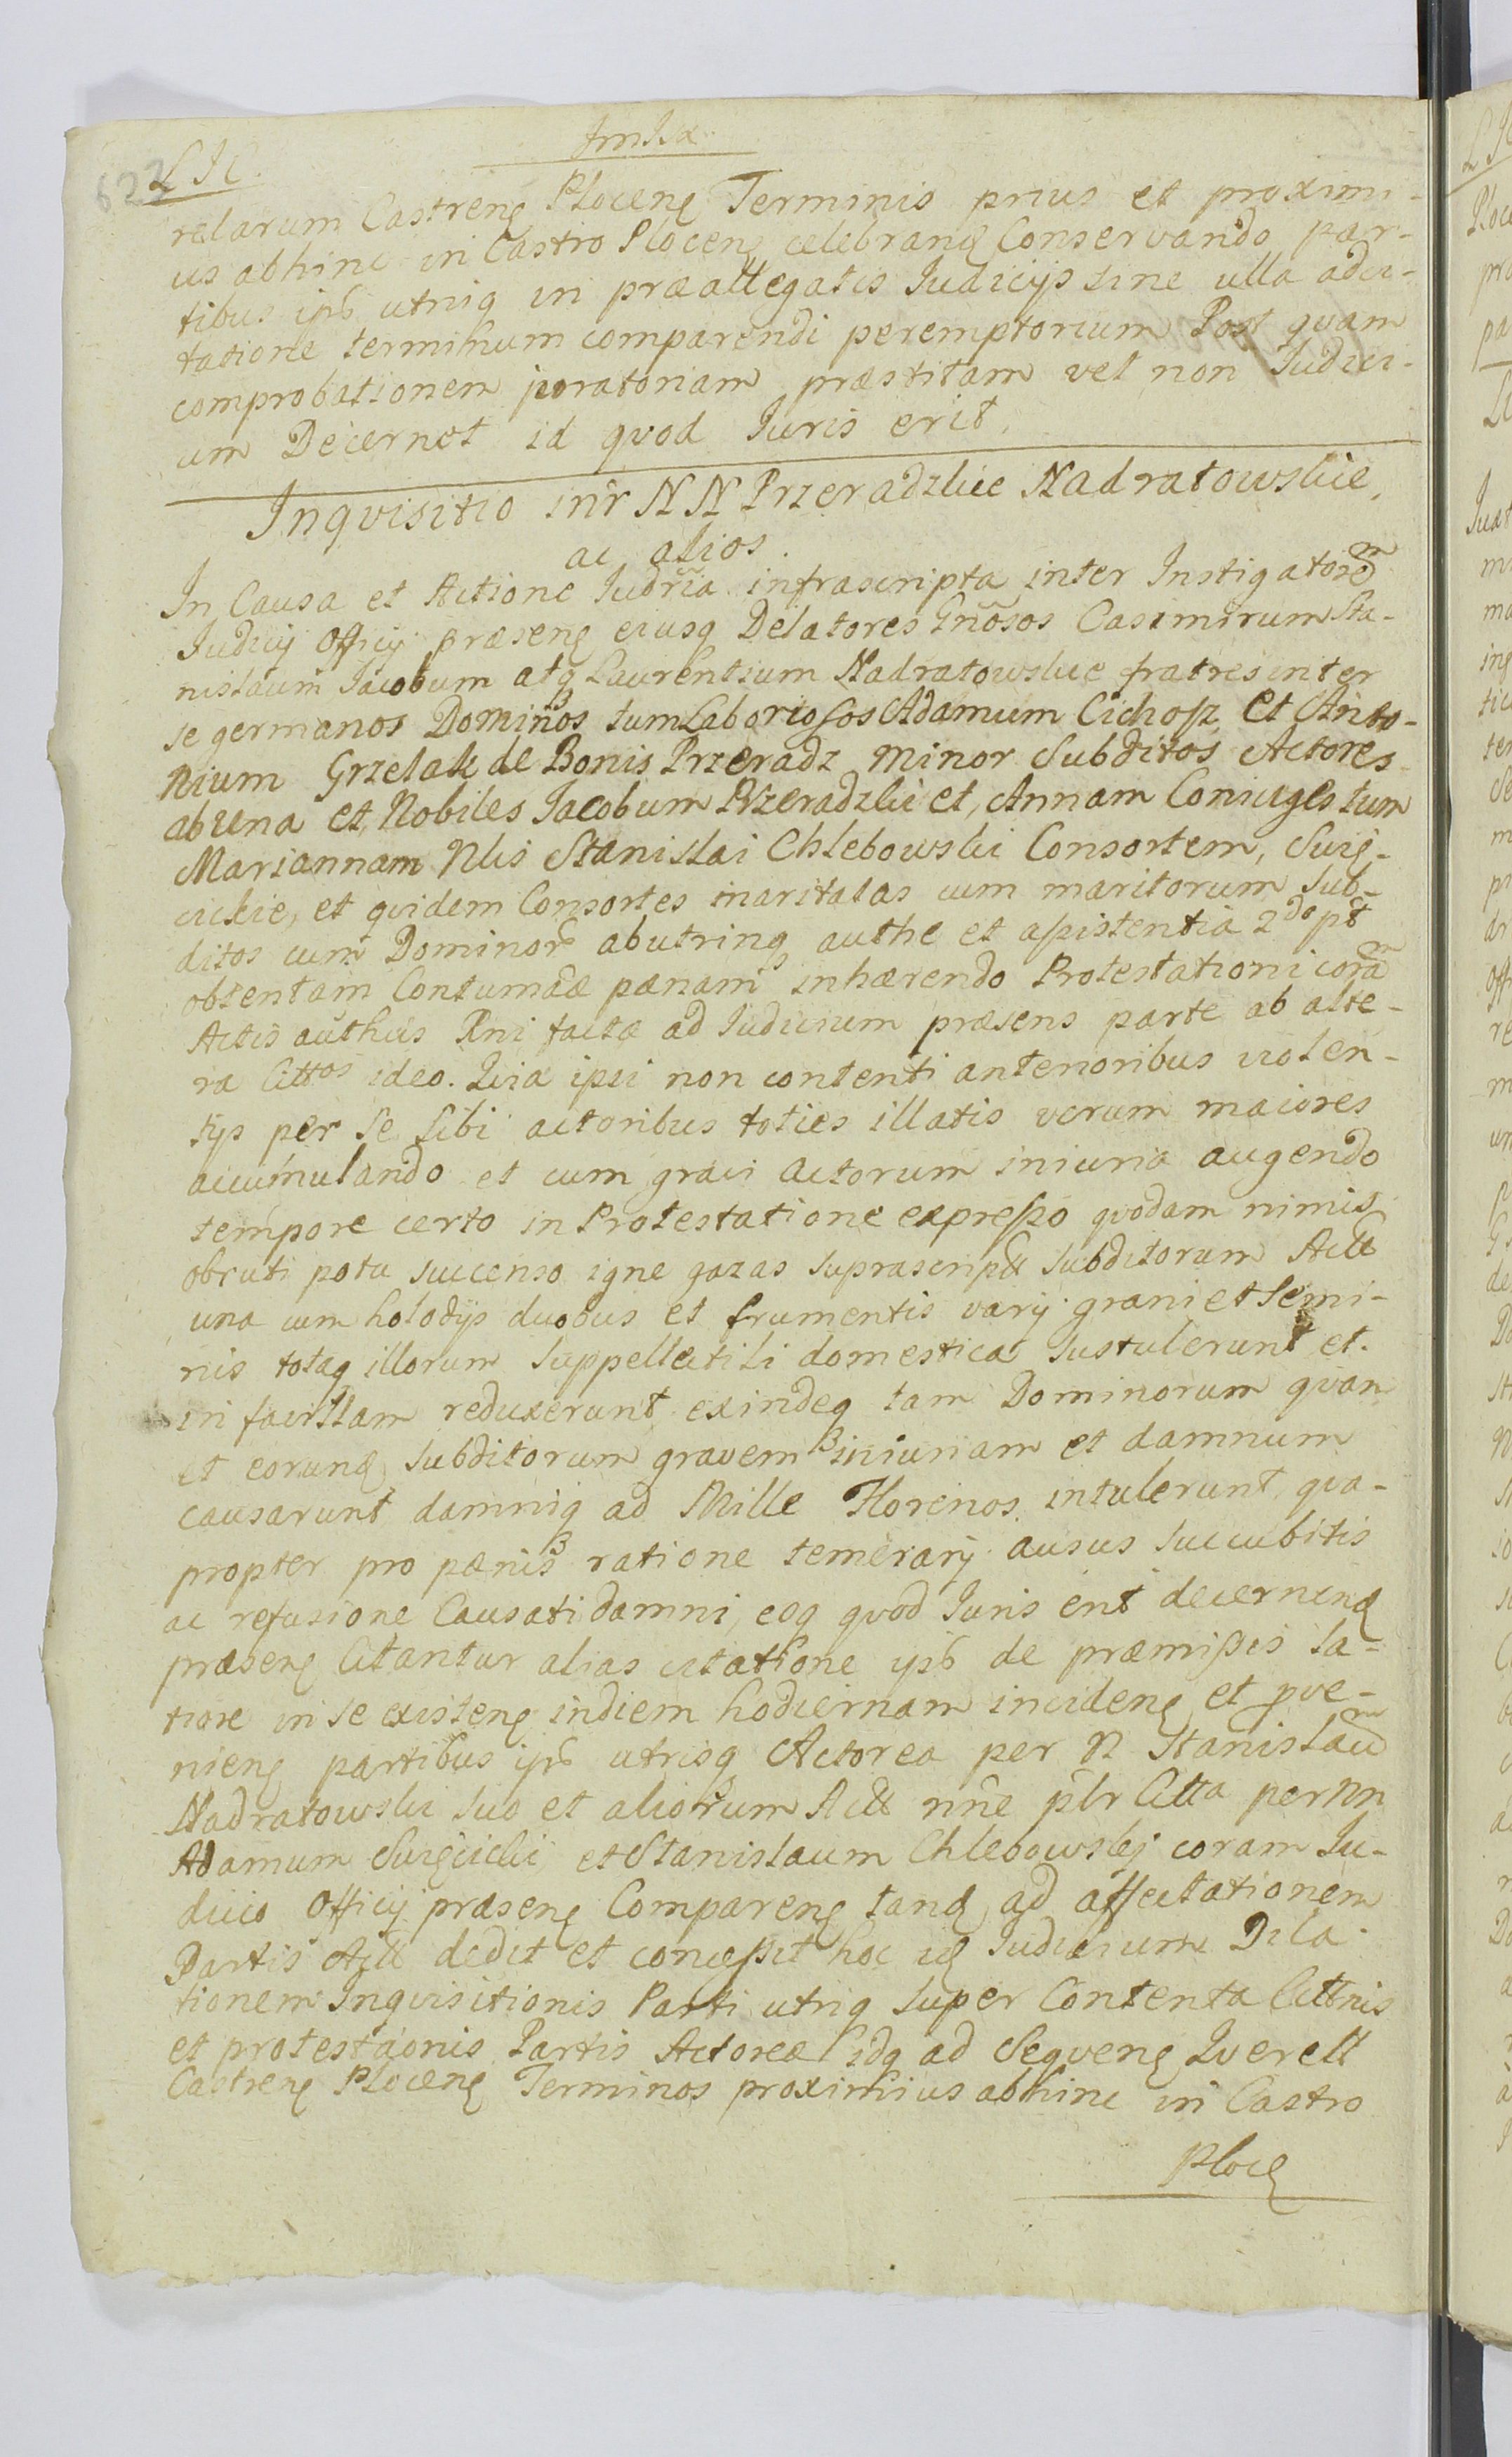 622
relarum Castreng Ploceng Terminis prius et proximi-
us abhinc in Castro Ploceng celebrang Conservando par-
tibus ipb utriq in præallegatis Iudicijs sine ulla adci-
tatione terminum comparendi peremptorium Post quam
comprobationem juratoriam præstitam vel non Iudici-
um Decernet id quod Iuris erit.
Inqvisitio intr NN Przeradzkie Nadratowskie,
ac alios.
In Causa et Actione Iudria infrascripta inter Instigatorem
Iudicij Officij præseng eiusq Delatores Gnosos Casimirum Sta-
nislaum Iacobum atq Laurentium Nadratowskie fratres inter
se germanos Dominos tum Laboriosos Adamum Cichosz et Anto-
nium Grzelak de Bonis Przeradz minor Subditos Actores
ab una et Nobiles Iacobum Przeradzki et, Annam Coniuges tum
Mariannam Nlis Stanislai Chlebowski Consortem, Surg-
cickie, et qvidem Consortes maritatas cum maritorum sub-
ditos cum Dominor abutrinq authe et assistentia 2do pt
obtentam Contumâæ pænam inhærendo Protestationi coram
Actis authcis Rni factæ ad Iudicium præsens parte ab alte-
ra Cittos ideo. Qvia ipsi non contenti anterioribus violen-
tijs per se sibi actoribus toties illatis verum maiores
accumulando et cum gravi actorum iniuria augendo
tempore certo in Protestatione expresso qvodam nimis
obruti potu succenso igne gazas suprascriptt subditorum Actt
una cum holodijs duobus et frumentis varij grani et semi-
nis totaq illorum suppellectili domestica sustulerunt et
in favillam reduxerunt exindeq tam Dominorum qvam
et eorund subditorum gravem iniuriam et damnum
causarunt damniq ad Mille Florenos intulerunt, qva-
propter pro pænis ratione temerarij ausus succubitis
ac refusione Causati damni, eoq qvod Iuris erit decernend
præseng Citantur alias citatione ipb de præmissis la-
tiore in se existeng indiem hodiernam incideng et pve-
nieng partibus ipb utrisq Actorea per N Stanislaum
Nadratowski suo et aliorum Actt nne pbr Citta per NN
Adamum Surgicki et Stanislaum Chlebowskj coram Iu-
dicio Officij præseng Compareng tand ad affectationem
Partis Actt dedit et concessit hoc id Iudicium Dila-
tionem Inqvisitionis Parti utriq super Contenta Cittnis
et protestaonis Partis Actoreæ idq ad Seqveng Qverell
Castreng Ploceng Terminos proximius abhinc in Castro
Ploce